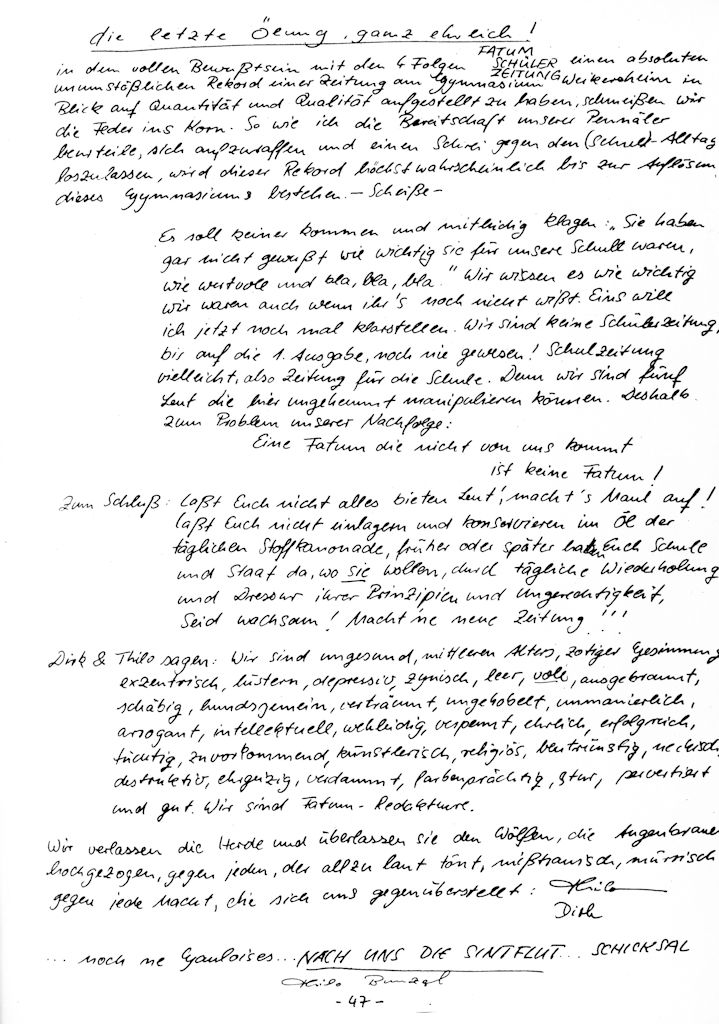 die letzte Ölung, ganz ehrlich!
in dem vollen Bewußtsein mit den 4 Folgen FATUM SCHÜLER ZEITUNG einen absoluten
unumstößlichen Rekord einer Zeitung am Gymnasium Weikersheim in
Blick auf Quantität und Qualität aufgestellt zu haben, schmeißen wir
die Feder ins Korn. So wie ich die Bereitschaft unserer Pennäler
beurteile, sich aufzuraffen und einen Schrei gegen den (Schul)-Alltag
loszulassen, wird dieser Rekord höchstwahrscheinlich bis zur Auflösun
dieses Gymnasiums bestehen. - Scheiße -
Es soll keiner kommen und mitleidig klagen: „Sie haben
gar nicht gewußt wie wichtig sie für unsere Schule waren,
wie wertvoll und bla, bla, bla." Wir wissen es wie wichtig
wir waren auch wenn ihr's noch nicht wißt. Eins will
ich jetzt noch mal klarstellen. Wir sind keine Schülerzeitung,
bis auf die 1. Ausgabe, noch nie gewesen! Schulzeitung
vielleicht, also Zeitung für die Schule. Denn wir sind fünf
Leut die hier ungehemmt manipulieren können. Deshalb
zum Problem unserer Nachfolge:
Eine Fatum die nicht von uns kommt
ist keine Fatum!
Zum Schluß: Laßt Euch nicht alles bieten Leut', macht's Maul auf!
laßt Euch nicht einlagern und konservieren im Öl der
täglichen Stoffkanonade, früher oder später hat Euch Schule
und Staat da, wo sie wollen, durch tägliche Wiederholung
und Dressur ihrer Prinzipien und Ungerechtigkeit,
Seid wachsam! Macht 'ne neue Zeitung!!!
Dirk & Thilo sagen: Wir sind ungesund, mittleren Alters, zotiger Gesinnung
exzentrisch, lüstern, depressiv, zynisch, leer, voll, ausgebrannt,
schäbig, hundsgemein, verträumt, ungehobelt, unmanierlich,
arrogant, intellektuell, wehleidig, verspannt, ehrlich, erfolgreich,
tüchtig, zuvorkommend, künstlerisch, religiös, blutrünstig, neckisch
destruktiv, ehrgeizig, verdammt, farbenprächtig, stur, pervertiert
und gut. Wir sind Fatum-Redakteure.
Wir verlassen die Herde und überlassen sie den Wölfen, die Augenbraue
hochgezogen, gegen jeden, der allzu laut tönt, mißtrauisch, mürrisch
gegen jede Macht, die sich uns gegenüberstellt: Thilo
Dirk
... noch ne Gauloises... NACH UNS DIE SINTFLUT... SCHICKSAL
Thilo
-47-